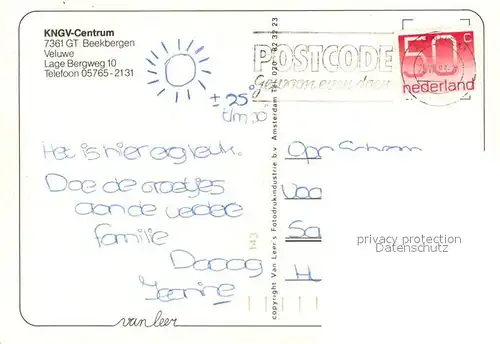 KNGV-Centrum
7361 GT Beekbergen
Veluwe
Lage Bergweg 10
Telefoon 05765 - 2131
± 25°
t/m 30
POSTCODE
gewoon even doen
50 c
nederland
Het is hier erg leuk.
Doe de groetjes
aan de
familie
Daaag
copyright Van Leer's Fotodrukindustrie b.v. Amsterdam Tel. 020 - 82 32 23
143
van leer
privacy protection
Datenschutz